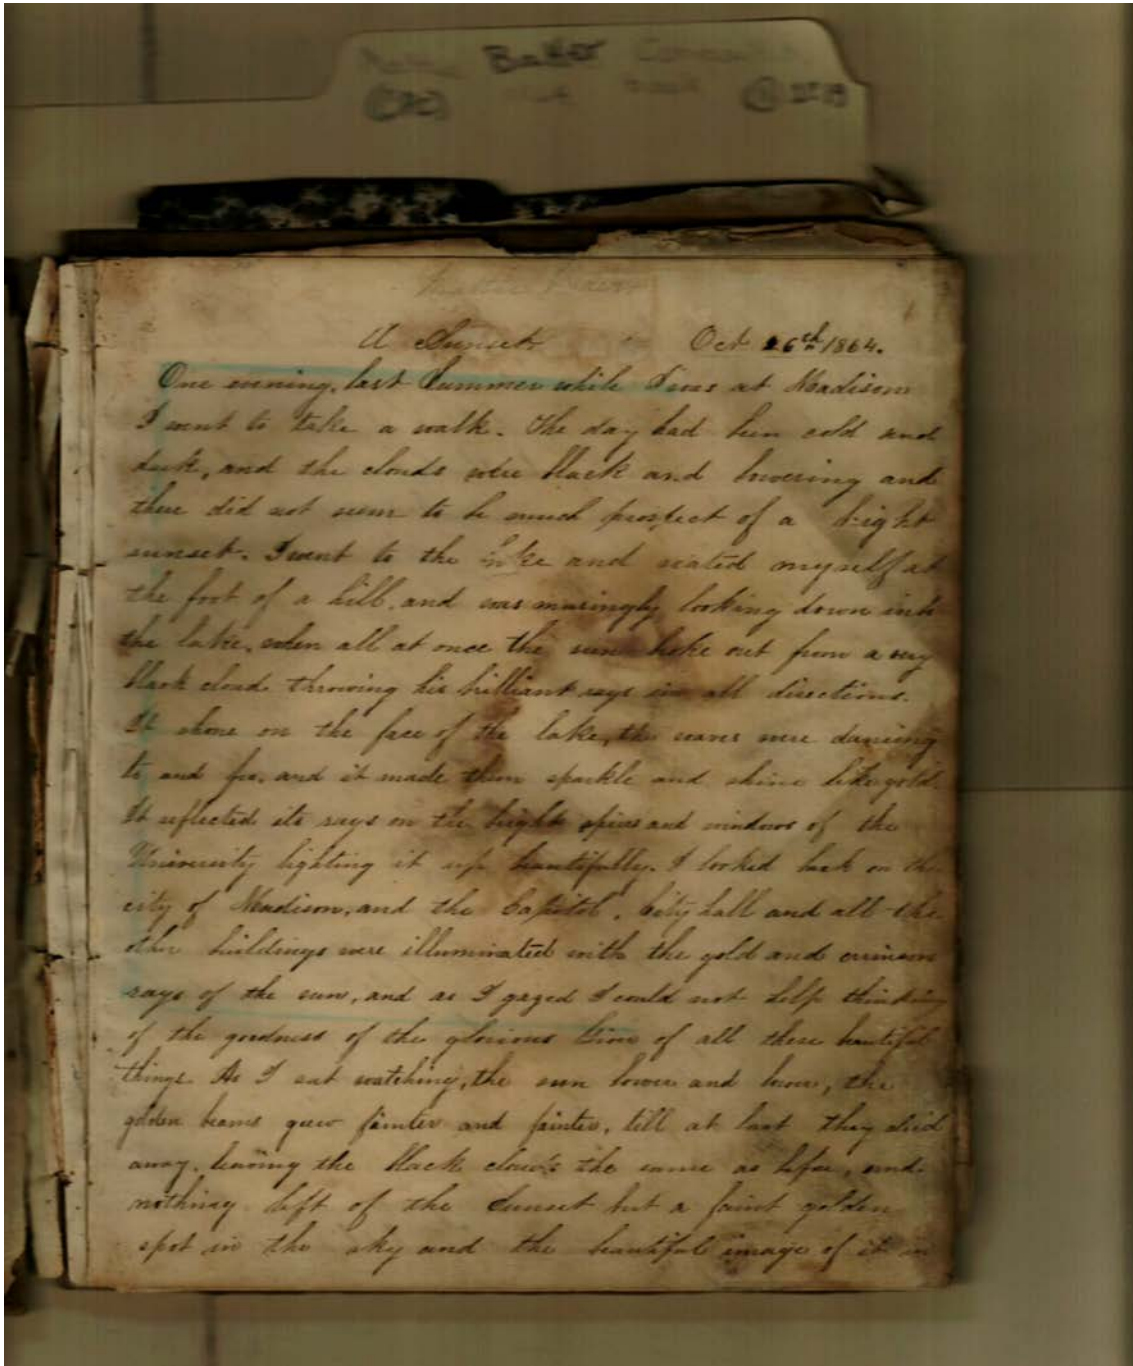 Baker
A Sunset Oct 26th 1864.
One evening, last Summer while I was at Madison
I went to take a walk. The day had been cold and
dark, and the clouds were black and lowering and
there did not seem to be much prospect of a bright
sunset. I went to the lake and seated myself at
the foot of a hill, and was musingly looking down into
the lake, when all at once the sun broke out from a very
black cloud throwing his brilliant rays in all directions.
It shone on the face of the lake, the waves were dancing
to and fro, and it made them sparkle and shine like gold.
It reflected its rays on the bright spires and windows of the
University lighting it up beautifully. I looked back on the
city of Madison, and the Capitol, City hall and all the
other buildings were illuminated with the gold and crimson
rays of the sun, and as I gazed I could not help thinking
of the goodness of the glorious Giver of all these beautiful
things. As I sat watching, the sun lower and lower, the
golden beams grew fainter and fainter, till at last they died
away, leaving the black clouds the same as before, and
nothing left of the Sunset but a faint golden
spot in the sky and the beautiful image of it in